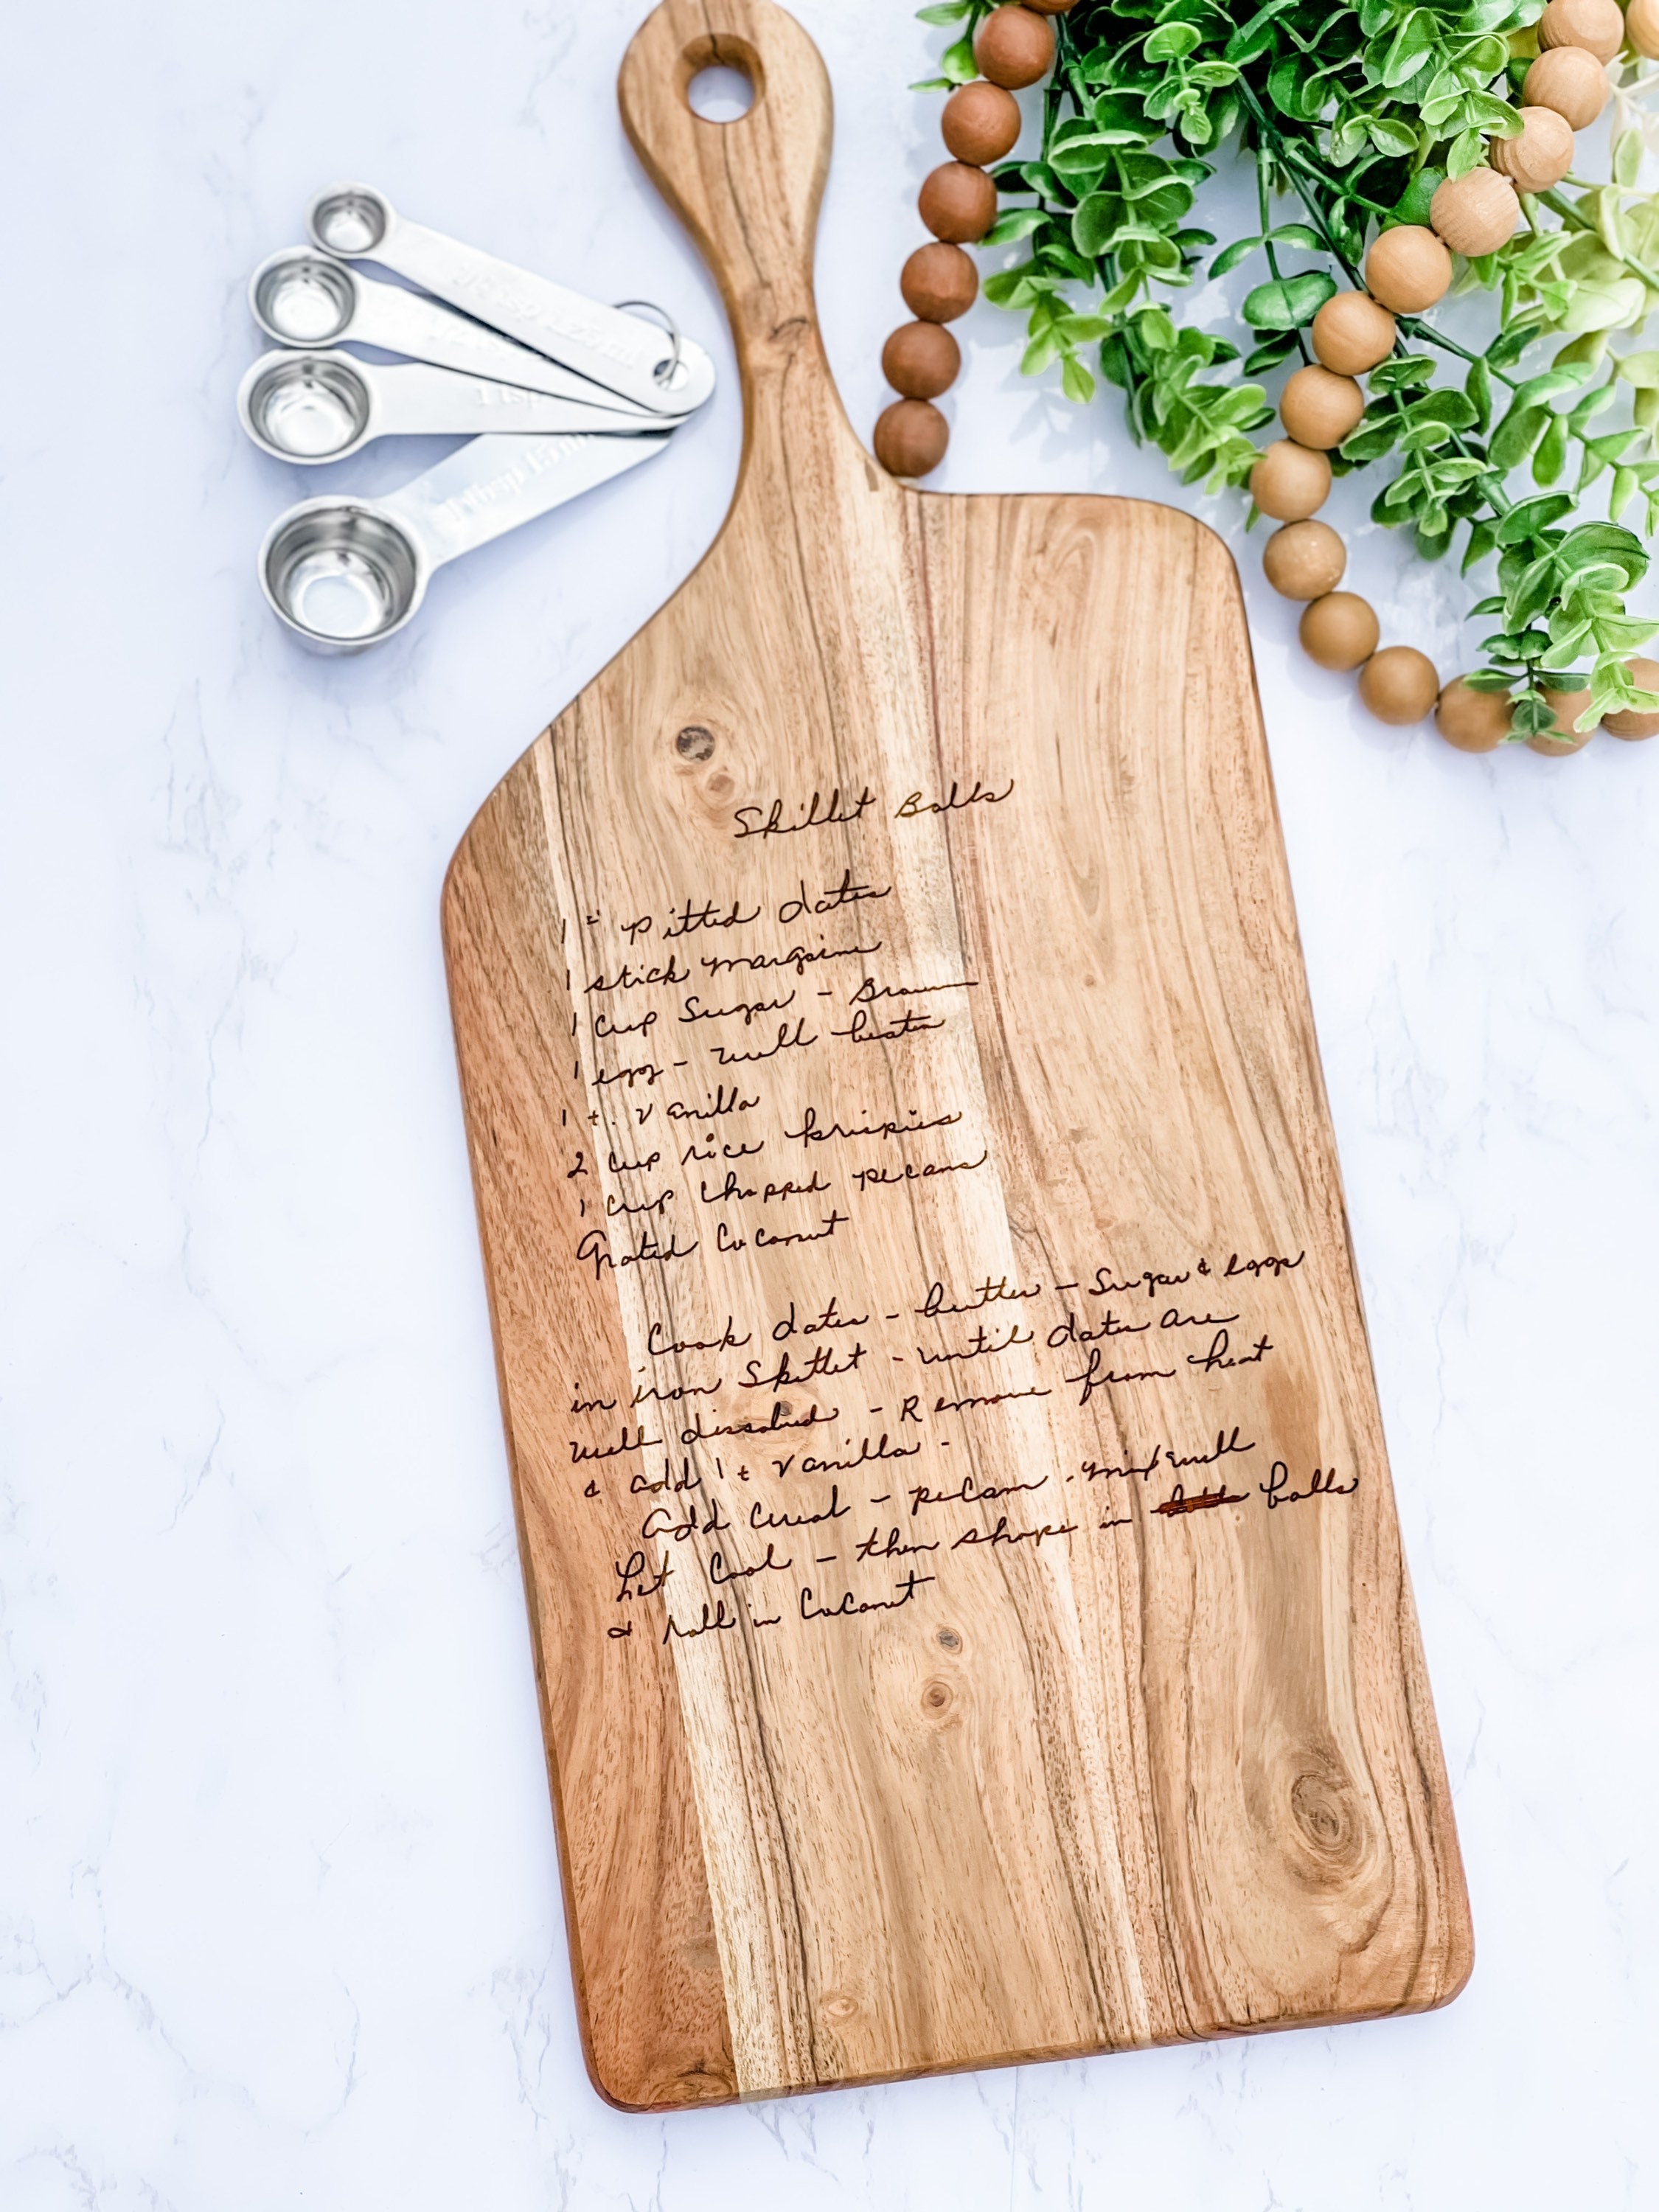 Skillet Balls
1 # pitted dates
1 stick margarine
1 cup Sugar - Brown
1 egg - well beaten
1 t. vanilla
2 cup rice krispies
1 cup chopped pecans
Grated Coconut
Cook dates - butter - Sugar & eggs
in iron Skillet - until dates are
well dissolved - Remove from heat
& add 1 t vanilla -
Add cereal - pecans - mix well
Let Cool - then shape in balls
& roll in Coconut